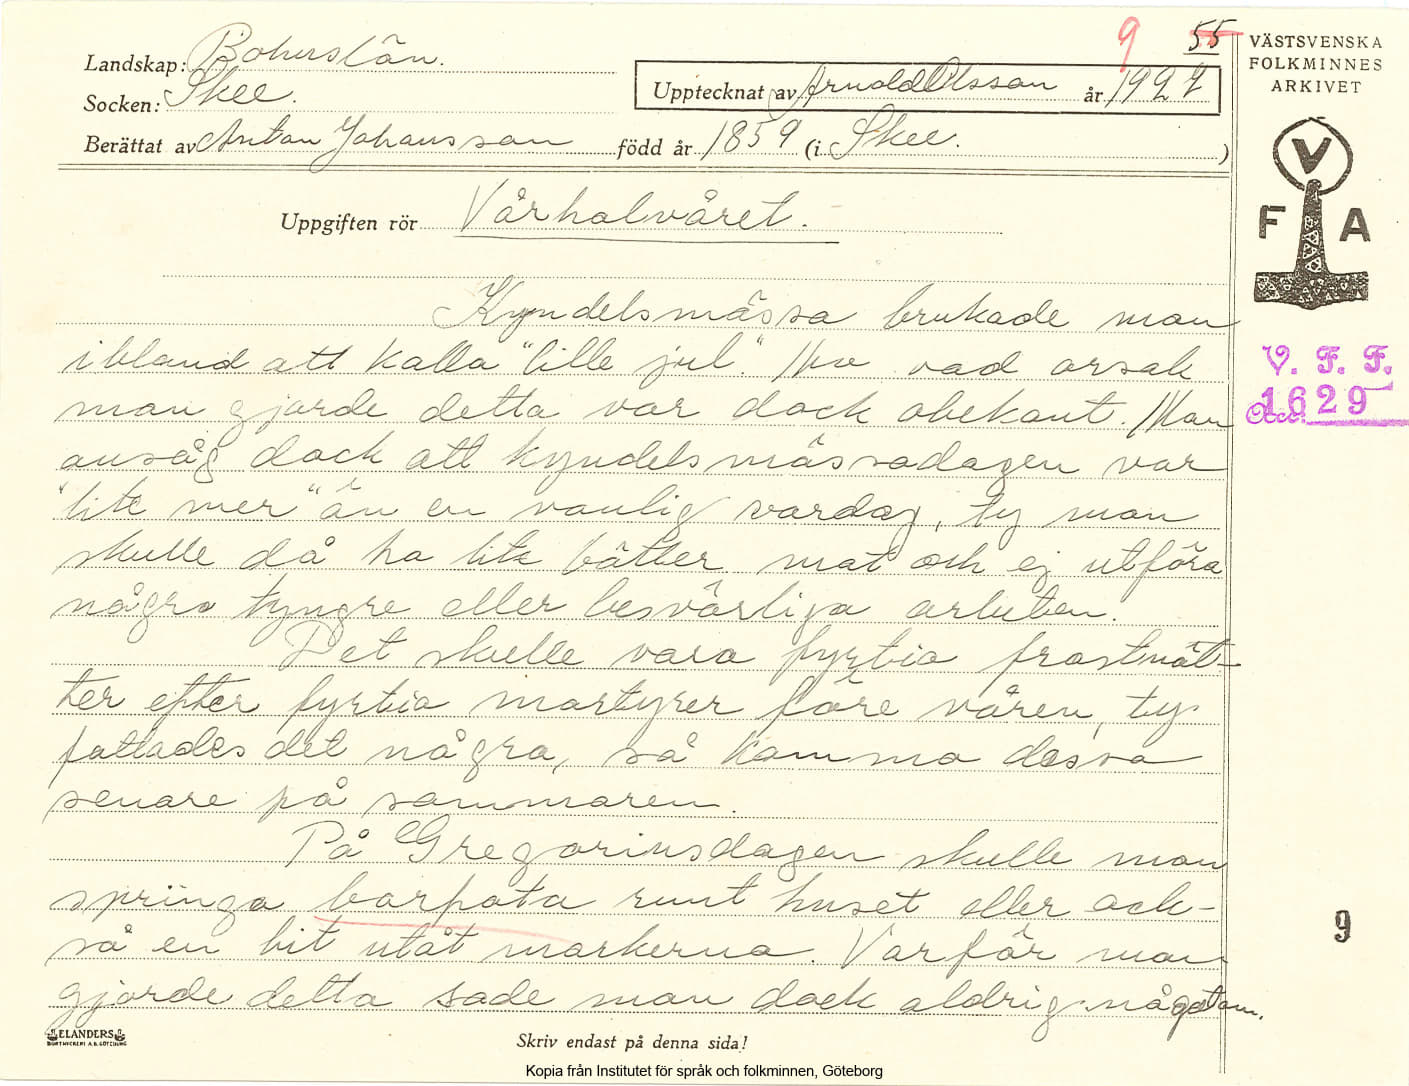 9 55
Landskap: Bohuslän.
Socken: Skee.
Upptecknat av Arnold Olsson år 1927
Berättat av Anton Johansson född år 1859 (i Skee.)
VÄSTSVENSKA
FOLKMINNES
ARKIVET
V
F A
Uppgiften rör Vårhalvåret.
Kyndelsmässa brukade man
ibland att kalla "lille jul". Av vad orsak
man gjorde detta var dock obekant. Man
ansåg dock att kyndelsmässodagen var
"lite mer" än en vanlig vardag, ty man
skulle då ha lite bätter mat och ej utföra
några tyngre eller besvärliga arbeten.
Det skulle vara fyrtio frostnät-
ter efter fyrtio martyrer före våren, ty
fattades det några, så komma dessa
senare på sommaren.
På Gregoriusdagen skulle man
springa barfota runt huset eller ock-
så en bit utåt markerna. Varför man
gjorde detta sade man dock aldrig något om.
V. F. F.
1629
9
ELANDERS
BOKTRYCKERI A.B. GÖTEBORG
Skriv endast på denna sida!
Kopia från Institutet för språk och folkminnen, Göteborg